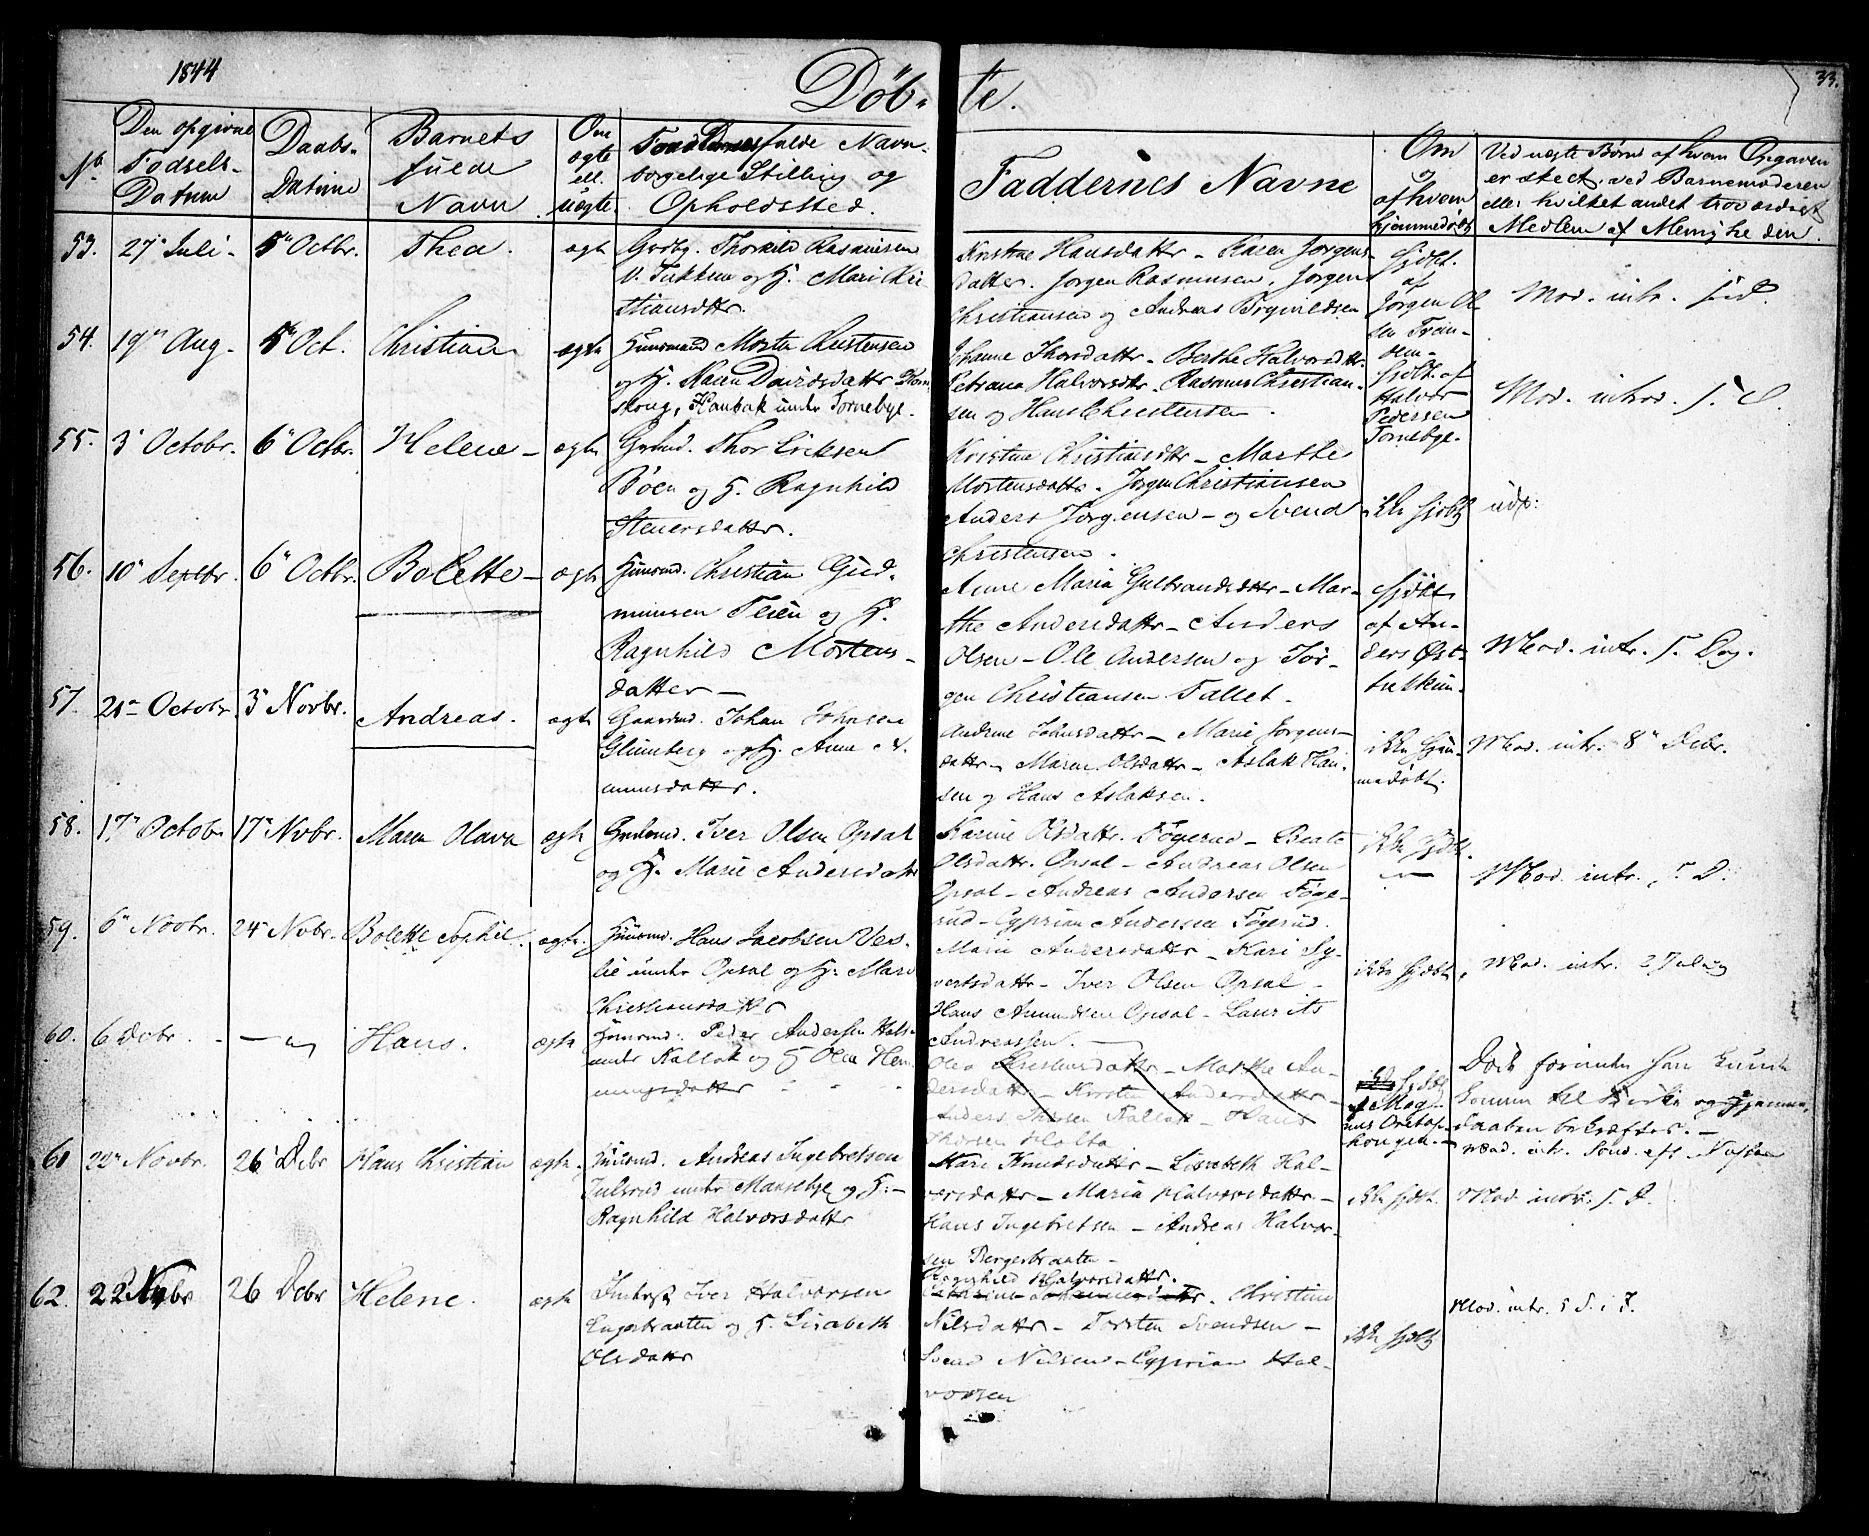 1844
Döbte.
33.
No
Den opgivne
Födsels-
Datum
Daabs-
Datum
Barnets
fulde
Navn
Om
ægte
ell.
uægte.
fulde Navn
borgelige Stilling og
Opholdssted.
Faddernes Navne
Om
og
af hvem
hjemmedöbt
Ved uægte Börn af hvem Opgaven
er skeet, ved Barnemoderen
eller hvilket andet troværdigt
Medlem af Menigheden.
53. 27 Juli - 5 Octbr. Thea. ægte
Thorkild Rasmusen
og H. Mari Kri
stiansdttr.
Kristine Hansdatter - Karen Jorgens-
datter. Jorgen Rasmusen, Jorgen
Christiansen og Andreas
hjdbt.
af
Jorgen Ol-
sen
Mod. intr.
54. 19 Aug - 5 Oct. Christian ægte
Huusmand Morten Christensen
og H. Maren Davidsdatter
skoug, Haubak under Tornebye.
Thorsdattr - Berthe Halvorsdttr.
Petriana Halvorsdtr. Rasmus Christian-
sen og Hans Christensen.
hjdbt. af
Halvor
Pedersen
Tornebye.
Mod. introd. s. D.
55. 3 Octobr. 6 Octbr. Helene - ægte
Thor Eriksen
Böen og H. Ragnhild
Steversdattr.
Kristine Christiansdttr - Marthe
Mortensdattr. Jorgen Christiansen
Anders Jorgensen - og Svend
Christensen.
ikke hjdbt
56. 10 Septbr. 6 Octbr. Bolette - ægte
Huusmd. Christian Gud-
munsen Teien og H.
Ragnhild Mortens-
datter -
Anne Maria Gulbrandsdattr - Mar-
the Andersdattr - Anders
Olsen - Ole Andersen og Jör-
gen Christiansen Fallet.
hjdbt
af An-
ders Öst-
Mod. intr. s. Dag.
57. 21 Octobr. 3 Novbr. Andreas. ægte
Gaardmd. Johan Johnsen
Glimberg og H. Anne
Andrine Johnsdattr - Marie Jorgens-
dattr - Maren Olsdattr - Aslak Han-
sen og Hans Aslaksen.
ikke hjem-
medöbt.
Mod. intr. 8 Decbr.
58. 17 Octobr 17 Nvbr. Maren Olava ægte
Iver Olsen Opsal
og H. Marie Andersdattr
Karine Olsdattr. Fögerud - Beate
Olsdattr. Opsal - Andreas Olsen
Opsal - Andreas Andersen Föge-
rud - Cyprian Andersen Fögerud.
ikke hjdbt.
Mod. intr. s. D.
59. 6 Novbr. 24 Nvbr. Bolette Sophie. ægte.
Huusmd. Hans Jacobsen Ves-
lie under Opsal og H. Mari
Christiansdattr
Marie Andersdattr - Kari Sy-
vertsdattr - Iver Olsen Opsal -
Hans Amundsen Opsal - Laurits
Andreassen.
ikke hjdbt,
Mod. intr. 2 Juledag
60. 6 Decbr. Hans. ægte
Huusmd. Peder Andersen
under Kallak og H Olea Hen-
ningsdatter
Olea Christensdattr - Marthe An-
dersdattr - Kirsten Andersdattr -
Anders Kallak - Hans
Thorsen Holta
hjdbt
af Mag-
nus
hougen. -
Daab forinden han kunde
komme til Kirke og hjemme
daaben bekræftes. -
Mod. intr. Sönd. eft. Nytaar
61 22 Novbr. 26 Dcbr Hans Christian ægte.
Huusmd. Andreas Ingebretsen
Julsrud under Mansebye og H. -
Ragnhild Halvorsdattr
Mari Knudsdattr - Lisabeth Hal-
vorsdattr - Maria Halvorsdattr -
Hans Ingebretsen - Andreas Halvor-
sen Bergerbraaten -
ikke hjdbt.
Mod. intr. s. D.
62. 22 Nvbr 26 Dcbr Helene. ægte
Iver Halvorsen
Engerbraaten og H. Lisabeth
Olsdattr
Ragnhild Halvorsdattr.
Christine
Nilsdattr - Torsten Svendsen -
Svend Nilsen - Cyprian Hal-
vorsen
ikke hjdbt
Mod. intr. 5 S. i F.